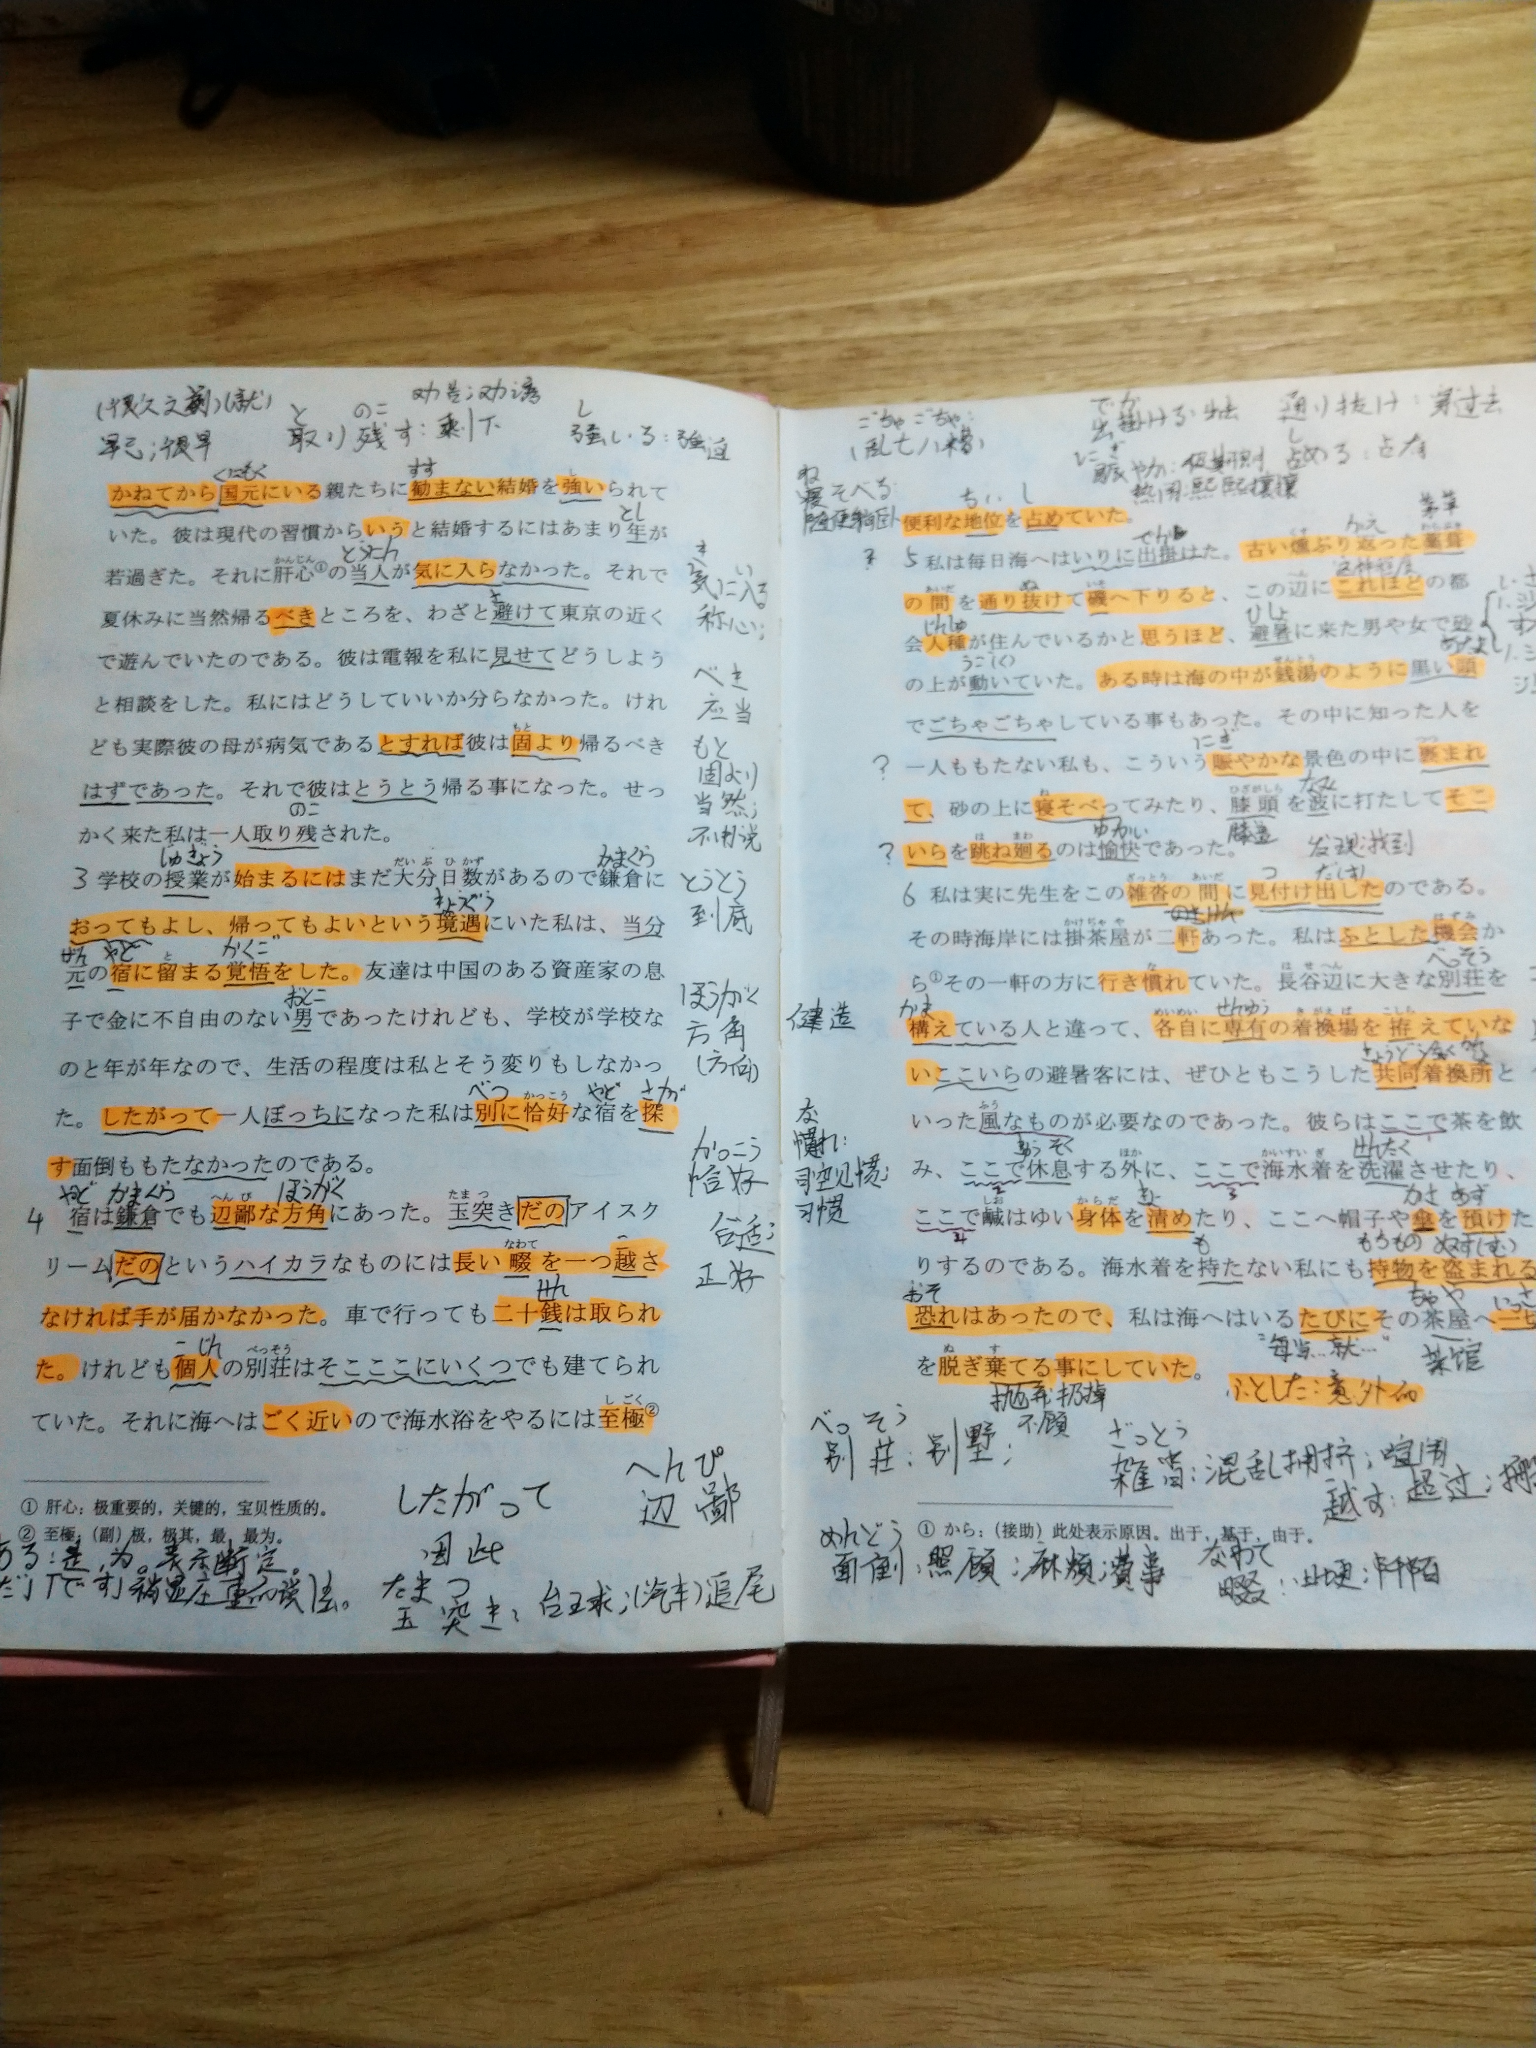 (很久之前)(就)
早已;很早
と のこ
取り残す:剩下
劝告;劝诱
し
強いる:強迫
くにもと
すす
かねてから国元にいる親たちに勧まない結婚を強いられて
いた。彼は現代の習慣からいうと結婚するにはあまり年が
とし
若過ぎた。それに肝心①の当人が気に入らなかった。それで
夏休みに当然帰るべきところを、わざと避けて東京の近く
で遊んでいたのである。彼は電報を私に見せてどうしよう
と相談をした。私にはどうしていいか分らなかった。けれ
ども実際彼の母が病気であるとすれば彼は固より帰るべき
はずであった。それで彼はとうとう帰る事になった。せっ
のこ
かく来た私は一人取り残された。
3 学校の授業が始まるにはまだ大分日数があるので鎌倉に
かまくら
おってもよし、帰ってもよいという境遇にいた私は、当分
やど かくご
元の宿に留まる覚悟をした。友達は中国のある資産家の息
おとこ
子で金に不自由のない男であったけれども、学校が学校な
のと年が年なので、生活の程度は私とそう変りもしなかっ
べつ かっこう やど さが
た。したがって一人ぼっちになった私は別に恰好な宿を探
す面倒ももたなかったのである。
やど かまくら へんぴ ほうがく
4 宿は鎌倉でも辺鄙な方角にあった。玉突きだのアイスク
リームだのというハイカラなものには長い畷を一つ越さ
せん
なければ手が届かなかった。車で行っても二十銭は取られ
こじん べっそう
た。けれども個人の別荘はそこここにいくつでも建てられ
ていた。それに海へはごく近いので海水浴をやるには至極②
き い
気に入る
称心;
べき
应当
もと
固より
当然;
不用说
とうとう
到底
ほうがく
方角
(方向)
かっこう
恰好
合适;
正好
① 肝心:极重要的,关键的,宝贝性质的。
② 至極:(副)极,极其,最,最为。
ある:是,为。表示断定。
だ」「です」
したがって
因此
へんぴ
辺鄙
たまつ
玉突き:台球;(汽车)追尾
ごちゃごちゃ:
(乱七八糟)
でか
出掛ける:出去
通り抜け:穿过去
にぎ
賑やか:
热闹;熙熙攘攘
し
占める:占有
ね
寝そべる:
随便躺卧
ちい し
便利な地位を占めていた。
5 私は毎日海へはいりに出掛けた。古い燻ぶり返った藁葺
の間を通り抜けて磯へ下りると、この辺にこれほどの都
じんしゅ ひしょ
会人種が住んでいるかと思うほど、避暑に来た男や女で砂
の上が動いていた。ある時は海の中が銭湯のように黒い頭
でごちゃごちゃしている事もあった。その中に知った人を
にぎ
? 一人ももたない私も、こういう賑やかな景色の中に裹まれ
て、砂の上に寝そべってみたり、膝頭を波に打たしてそこ
ゆかい
膝盖
? いらを跳ね廻るのは愉快であった。
发现;找到
6 私は実に先生をこの雑沓の間に見付け出したのである。
その時海岸には掛茶屋が二軒あった。私はふとした機会か
べっそう
ら①その一軒の方に行き慣れていた。長谷辺に大きな別荘を
かま せんゆう
構えている人と違って、各自に専有の着換場を拵えていな
いここいらの避暑客には、ぜひともこうした共同着換所と
いった風なものが必要なのであった。彼らはここで茶を飲
きゅうそく せんたく
み、ここで休息する外に、ここで海水着を洗濯させたり、
かさ あず
ここで鹹はゆい身体を清めたり、ここへ帽子や傘を預けた
りするのである。海水着を持たない私にも持物を盗まれる
おそ
恐れはあったので、私は海へはいるたびにその茶屋へ一切
"每当…就…"
茶馆
を脱ぎ棄てる事にしていた。
抛弃;扔掉
不顾
ふとした:意外的
建造
な
慣れ:
司空见惯;
习惯
べっそう
別荘:别墅;
ざっとう
雑沓:混乱拥挤;喧闹
越す:超过;
① から:(接助)此处表示原因。出于,基于,由于。
めんどう
面倒:照顾;麻烦;費事
なわて
畷: